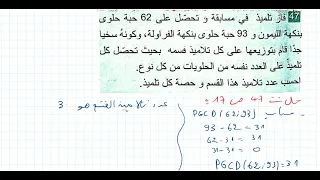 47 فاز تلميذ في مسابقة و تحصّل على 62 حبة حلوى
بنكهة الليمون و 93 حبة حلوى بنكهة الفراولة، وكونهُ سخيا
جدًا قام بتوزيعها على كل تلاميذ قسمه بحيث تحصّل كل
تلميذ على العدد نفسه من الحلويات من كل نوع.
احسب عدد تلاميذ هذا القسم و حصة كل تلميذ.
حل ت 47 ص 17:
حساب PGCD(62;93)
93 - 62 = 31
62 - 31 = 31
31 - 31 = 0
PGCD(62;93)=31
عدد تلاميذ القسم هو 3